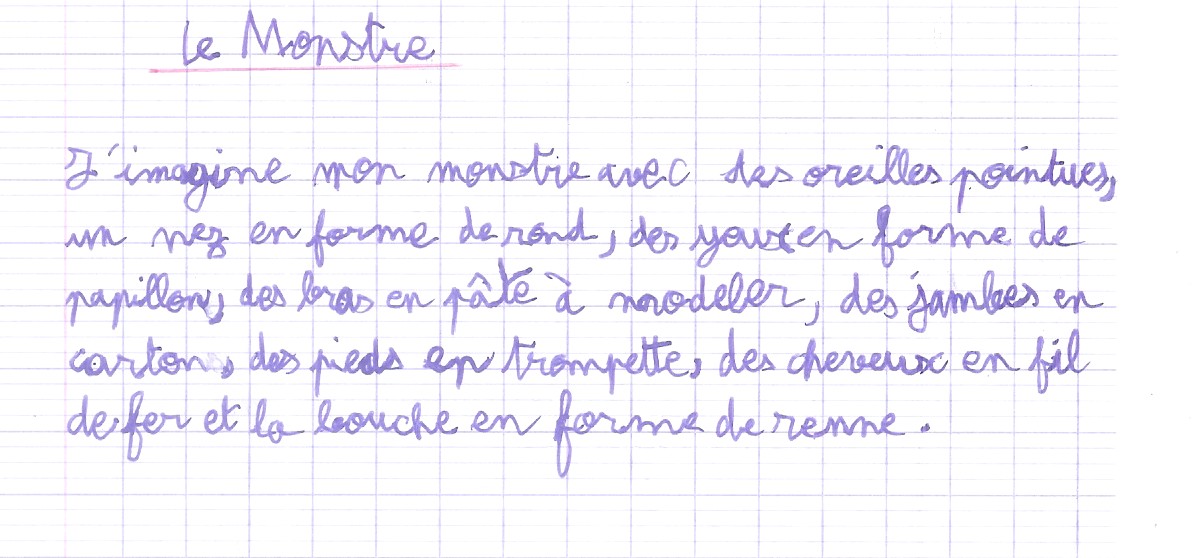 Le Monstre
J'imagine mon monstre avec des oreilles pointues,
un nez en forme de rond, des yeux en forme de
papillon, des bras en pâté à modeler, des jambes en
carton, des pieds en trompette, des cheveux en fil
de fer et la bouche en forme de renne.